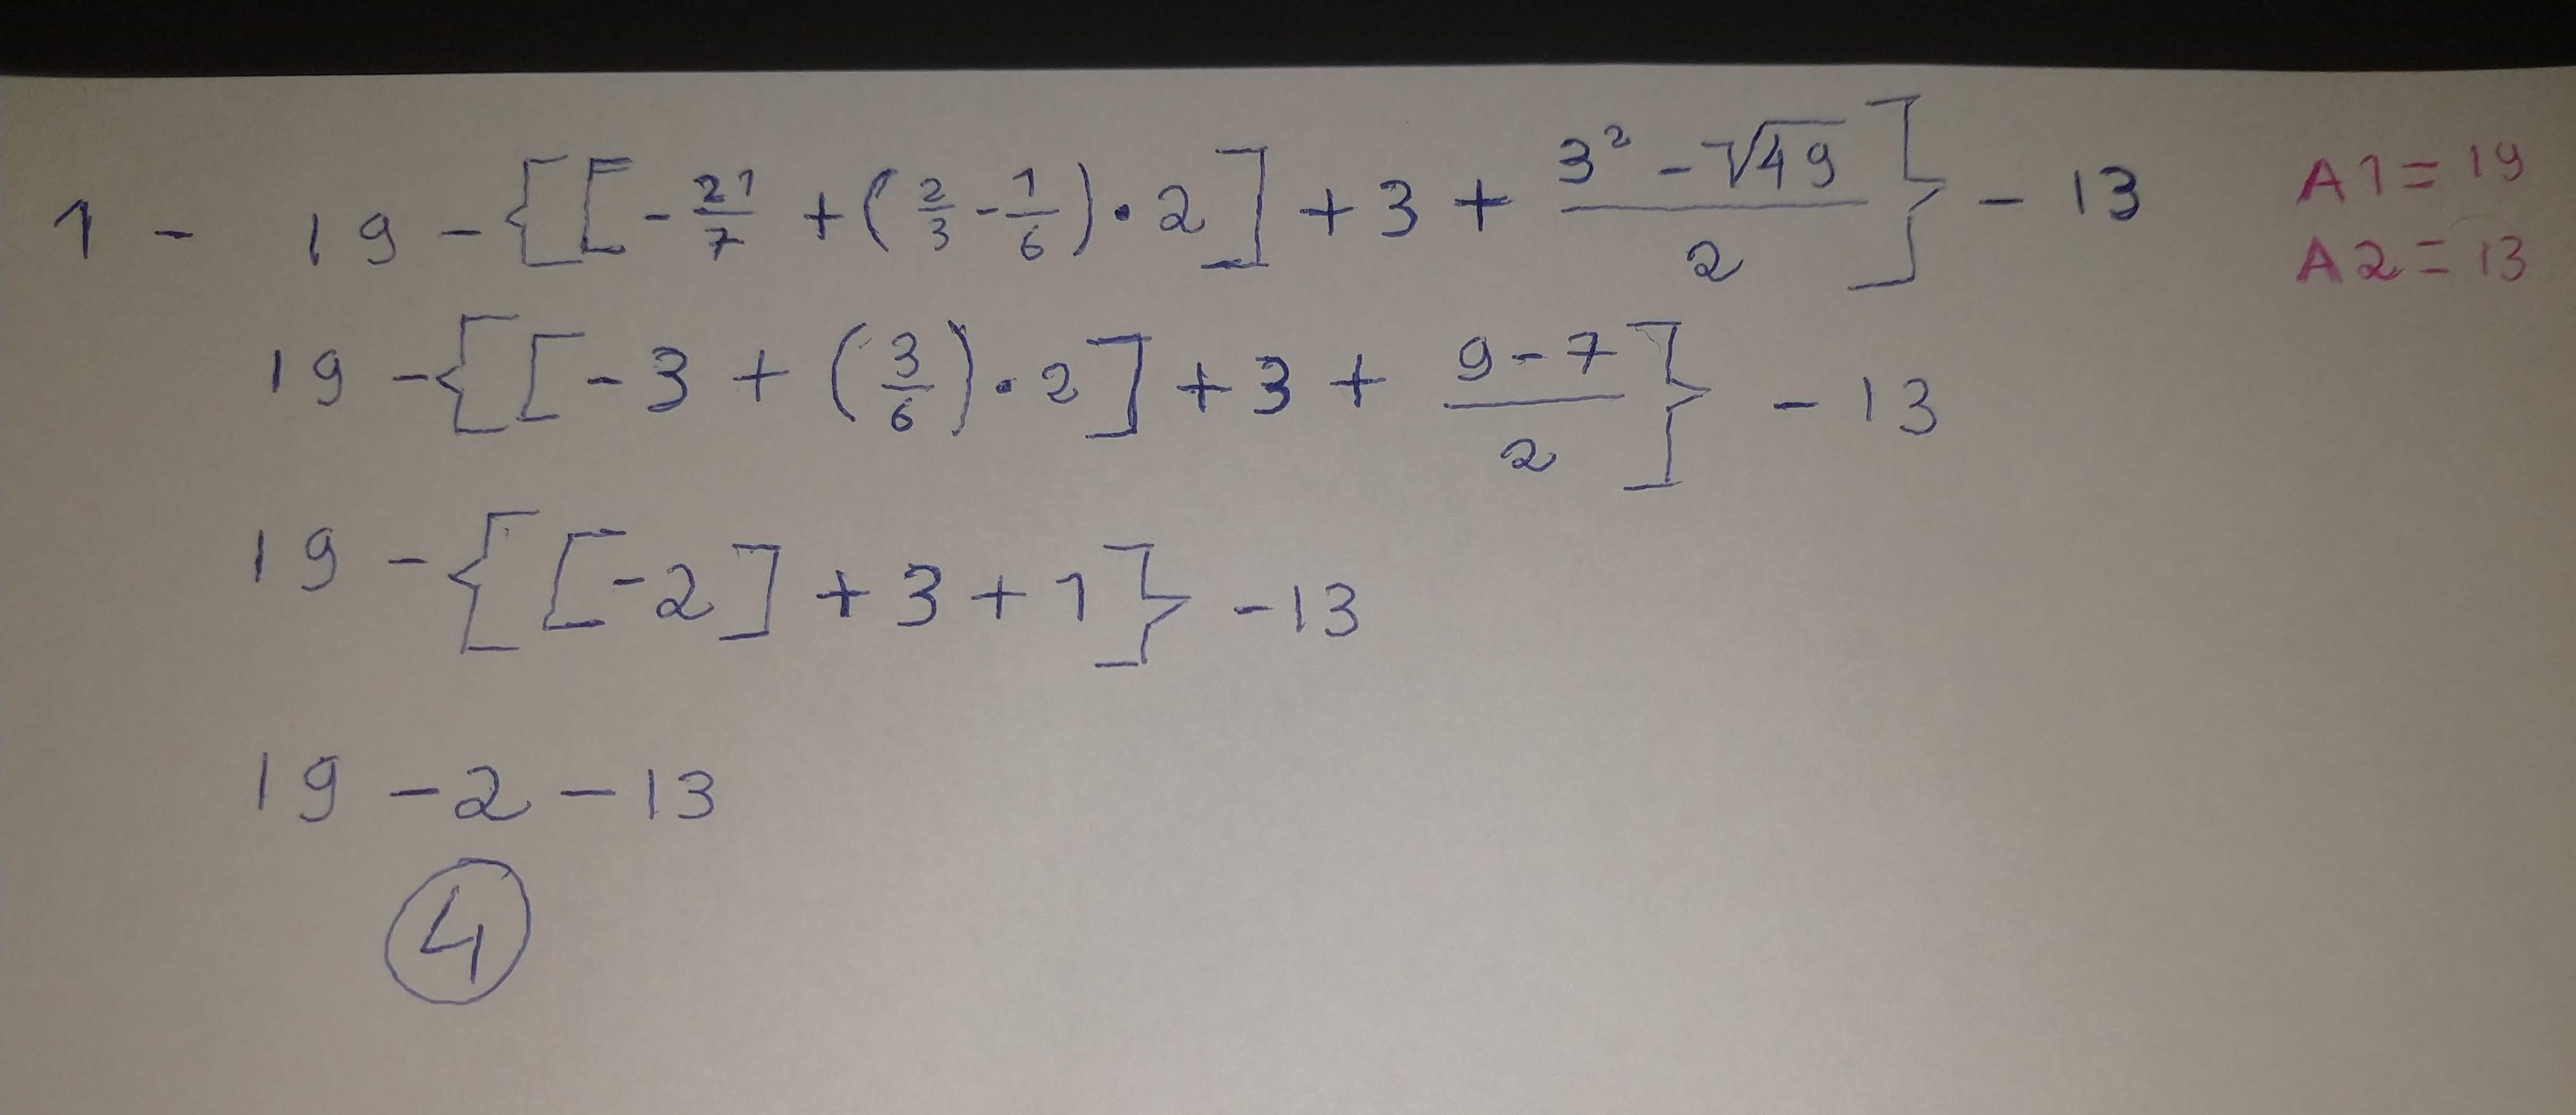 1 - 19 - {[-21/7 + (2/3 - 1/6) · 2] + 3 + (3² - √49)/2} - 13
A1 = 19
A2 = 13
19 - {[-3 + (3/6) · 2] + 3 + (9 - 7)/2} - 13
19 - {[-2] + 3 + 1} - 13
19 - 2 - 13
4